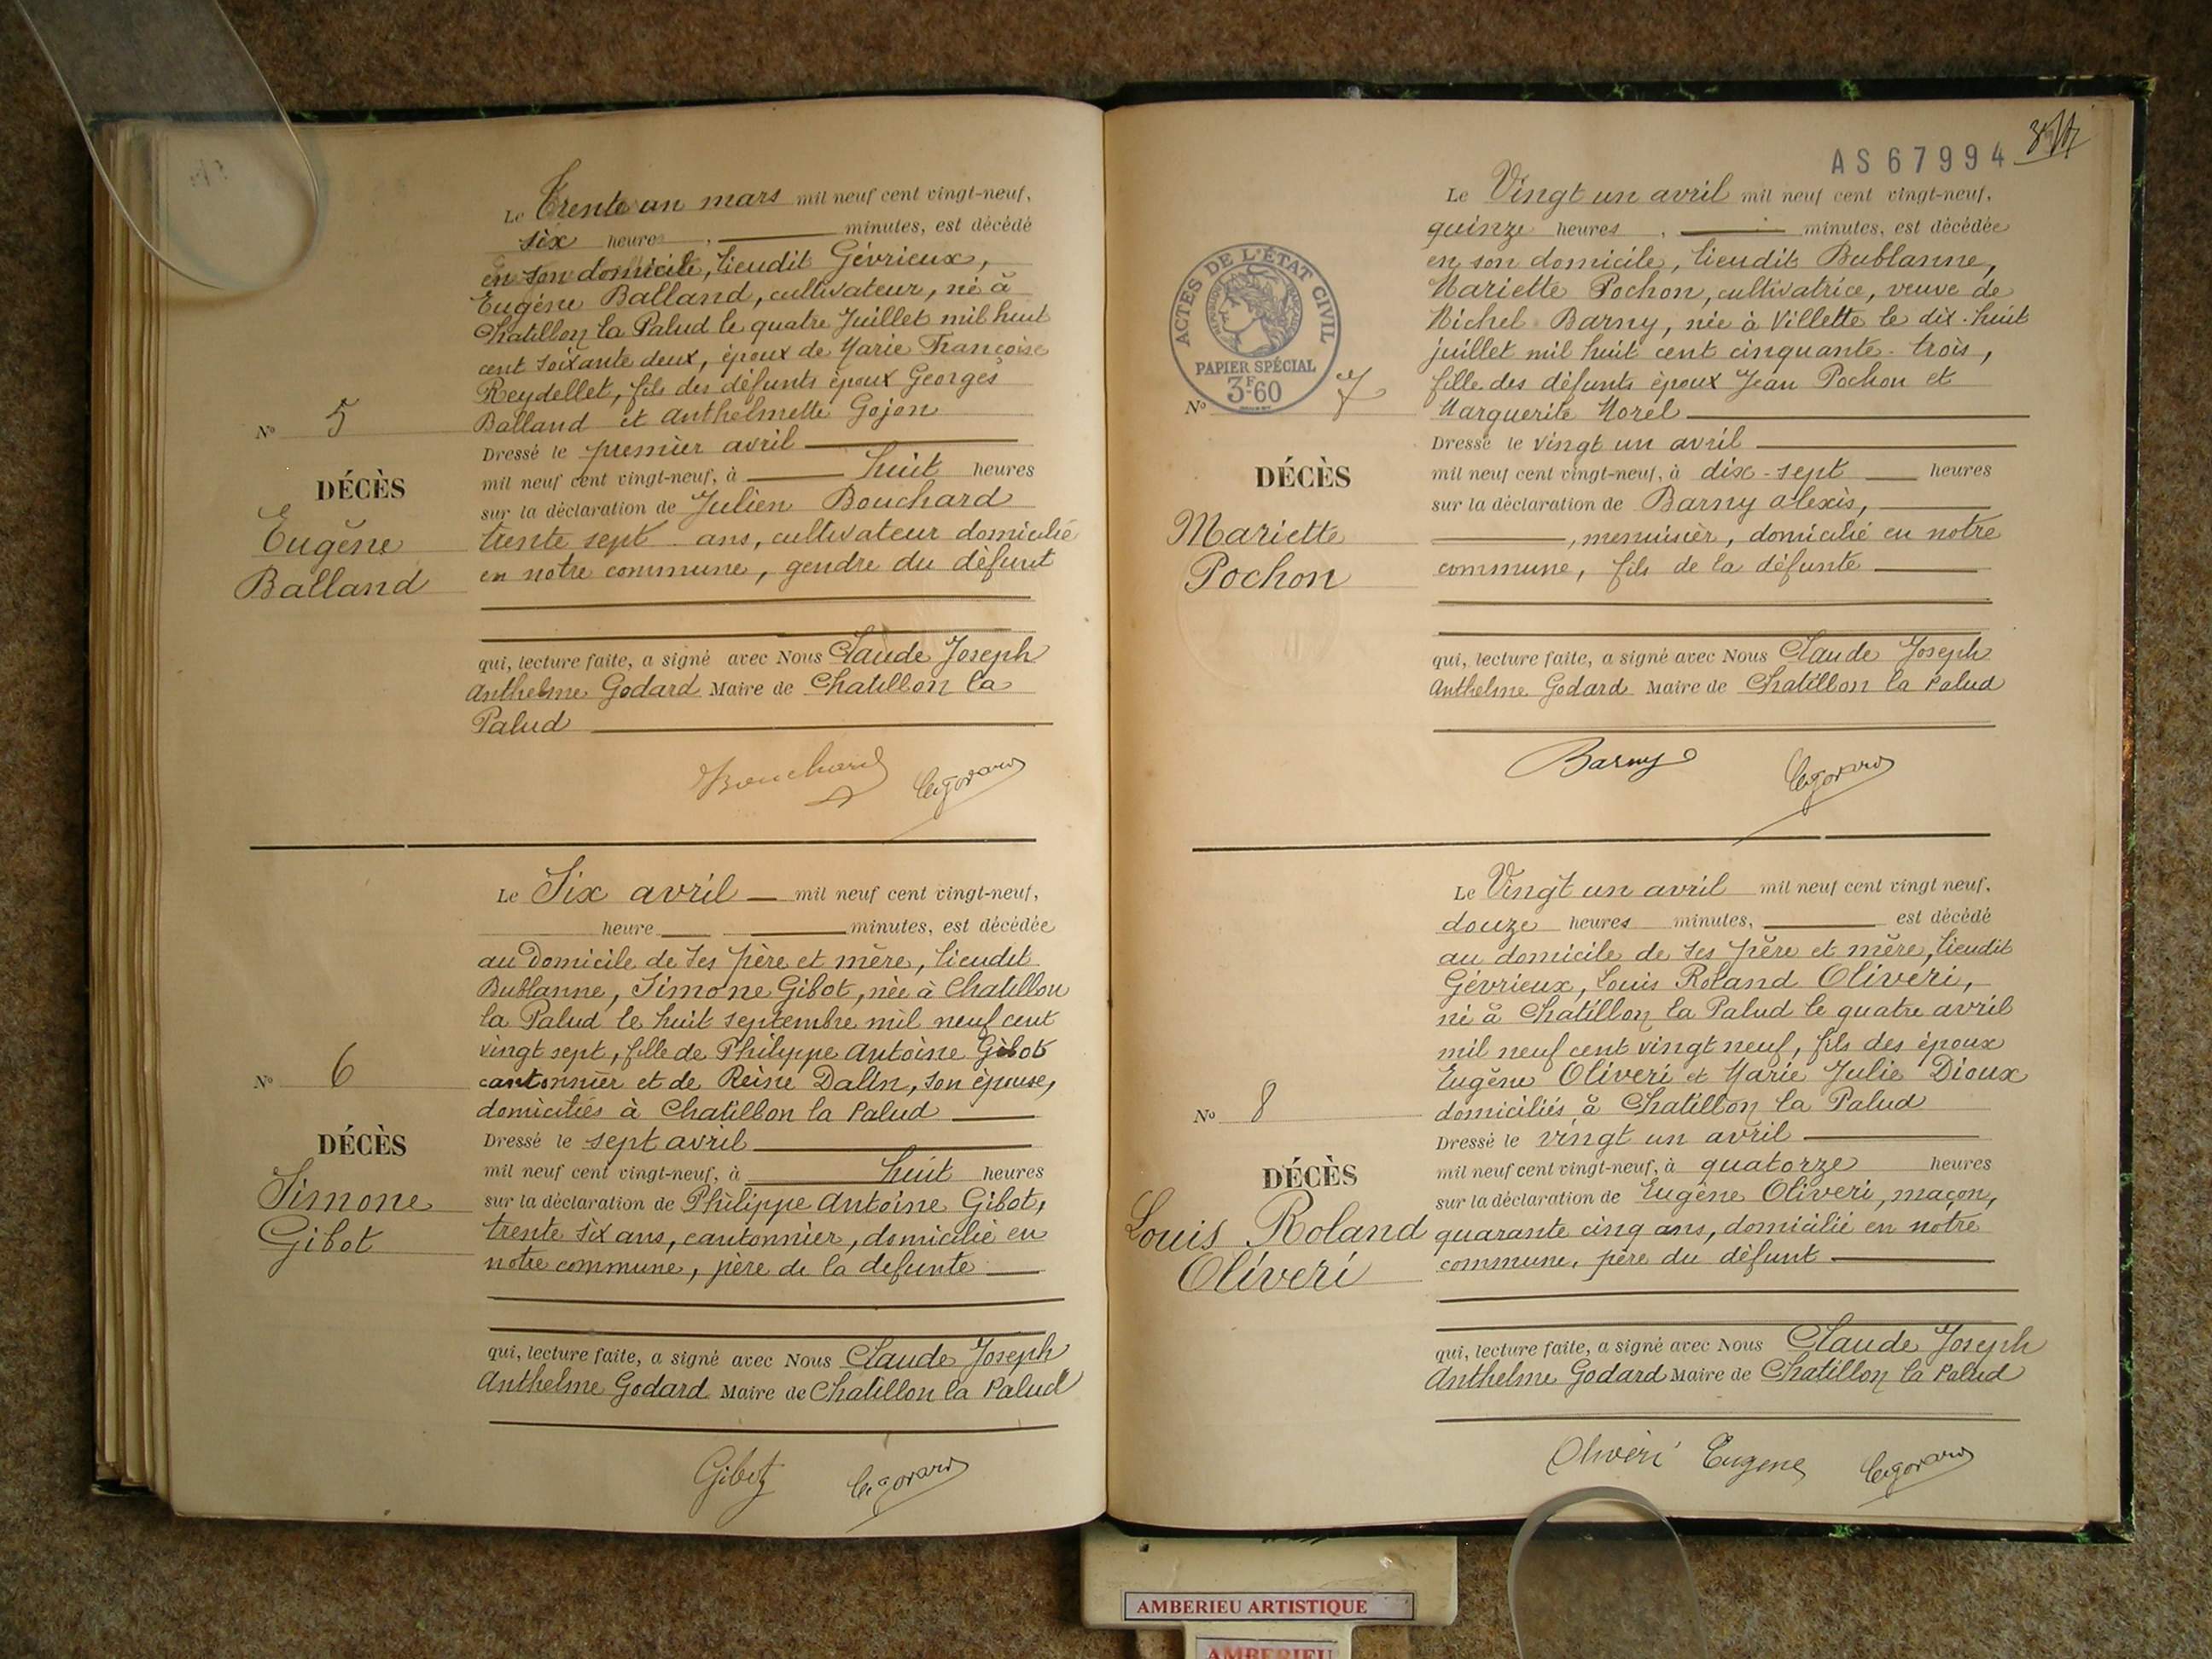 Le Trente un mars mil neuf cent vingt-neuf,
six heures, minutes, est décédé
en son domicile, lieudit Gévrieux,
Eugène Balland, cultivateur, né à
Chatillon la Palud le quatre Juillet mil huit
cent soixante deux, époux de Marie Françoise
Reydellet, fils des défunts époux Georges
Balland et Anthelmette Gojon
Dressé le premier avril
mil neuf cent vingt-neuf, à huit heures
sur la déclaration de Julien Bouchard
trente sept ans, cultivateur domicilié
en notre commune, gendre du défunt
qui, lecture faite, a signé avec Nous Claude Joseph
Anthelme Godard Maire de Chatillon la
Palud
Bouchard
N° 5
DÉCÈS
Eugène
Balland
Le Six avril mil neuf cent vingt-neuf,
heure minutes, est décédée
au domicile de ses père et mère, lieudit
Bublanne, Simone Gibot, née à Chatillon
la Palud le huit septembre mil neuf cent
vingt sept, fille de Philippe Antoine Gibot
cantonnier et de Reine Dalin, son épouse,
domiciliés à Chatillon la Palud
Dressé le sept avril
mil neuf cent vingt-neuf, à huit heures
sur la déclaration de Philippe Antoine Gibot,
trente six ans, cantonnier, domicilié en
notre commune, père de la defunte
qui, lecture faite, a signé avec Nous Claude Joseph
Anthelme Godard Maire de Chatillon la Palud
Gibot
N° 6
DÉCÈS
Simone
Gibot
AS67994
Le Vingt un avril mil neuf cent vingt-neuf,
quinze heures, minutes, est décédée
en son domicile, lieudit Bublanne,
Mariette Pochon, cultivatrice, veuve de
Michel Barny, née à Villette le dix-huit
juillet mil huit cent cinquante-trois,
fille des défunts époux Jean Pochon et
Marguerite Morel
Dressé le vingt un avril
mil neuf cent vingt-neuf, à dix-sept heures
sur la déclaration de Barny Alexis,
, menuisier, domicilié en notre
commune, fils de la défunte
qui, lecture faite, a signé avec Nous Claude Joseph
Anthelme Godard Maire de Chatillon la Palud
Barny
ACTES DE L'ÉTAT CIVIL
PAPIER SPÉCIAL
3F60
N° 7
DÉCÈS
Mariette
Pochon
Le Vingt un avril mil neuf cent vingt neuf,
douze heures minutes, est décédé
au domicile de ses père et mère, lieudit
Gévrieux, Louis Roland Oliveri,
né à Chatillon la Palud le quatre avril
mil neuf cent vingt neuf, fils des époux
Eugène Oliveri et Marie Julie Dioux
domiciliés à Chatillon la Palud
Dressé le vingt un avril
mil neuf cent vingt-neuf, à quatorze heures
sur la déclaration de Eugène Oliveri, maçon,
quarante cinq ans, domicilié en notre
commune, père du défunt
qui, lecture faite, a signé avec Nous Claude Joseph
Anthelme Godard Maire de Chatillon la Palud
Oliveri Eugene
N° 8
DÉCÈS
Louis Roland
Oliveri
AMBERIEU ARTISTIQUE
AMBERIEU